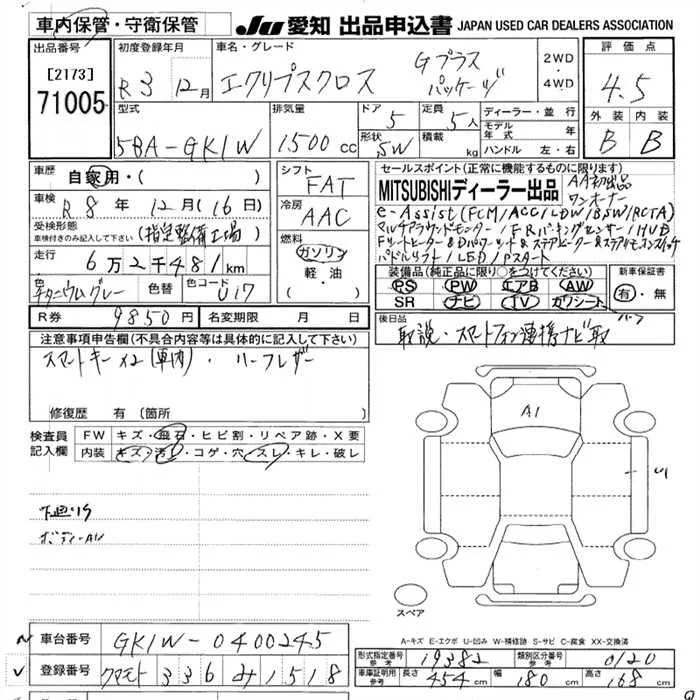 車内保管・守衛保管
JU 愛知 出品申込書 JAPAN USED CAR DEALERS ASSOCIATION
出品番号
[2173]
71005
初度登録年月
R3 12月
車名・グレード
エクリプスクロス
Gプラス
パッケージ
2WD
4WD
評価点
4.5
外装 内装
B B
型式
5BA-GK1W
排気量
1500 cc
ドア
5
定員
5人
形状
SW
積載
kg
ディーラー・並行
モデル年式 年
ハンドル 左・右
車歴
自家用・( )
車検
R8年 12月 (16日)
受検形態
車検付きのみ記入して下さい
(指定整備工場)
走行
6万2千481km
色
チタニウムグレー
色替
色コード
U17
R券
9850円
名変期限 月 日
シフト
FAT
冷房
AAC
燃料
ガソリン
軽・油
セールスポイント(正常に機能するものに限ります)
MITSUBISHIディーラー出品
AA初出品
ワンオーナー
e-Assist(FCM/ACC/LDW/BSW/RCTA)
マルチアラウンドモニター/FRパーキングセンサー/HUD
パドルシフト/LED/Pスタート
装備品(純正品に限り○をつけて下さい)
PS PW エアB AW
SR ナビ TV カワシート
ハーフ
新車保証書
有・無
後日品
取説・スマートフォン連携ナビ取
注意事項申告欄(不具合内容等は具体的に記入して下さい)
スマートキー×2(車内)・ハーフレザー
修復歴 有(箇所
検査員
記入欄
FW キズ・飛石・ヒビ割・リペア跡・X要
内装 キズ・汚れ・コゲ・穴・スレ・キレ・破レ
下廻りS
A1
U1
スペア
A-キズ E-エクボ U-凹み W-補修跡 S-サビ C-腐食 XX-交換済
車台番号
GK1W-0400245
登録番号
クマモト 336 み 1518
形式指定番号
参考
19382
類別区分番号
参考
0120
車庫証明用
参考
長さ 454 cm 幅 180 cm 高さ 168 cm